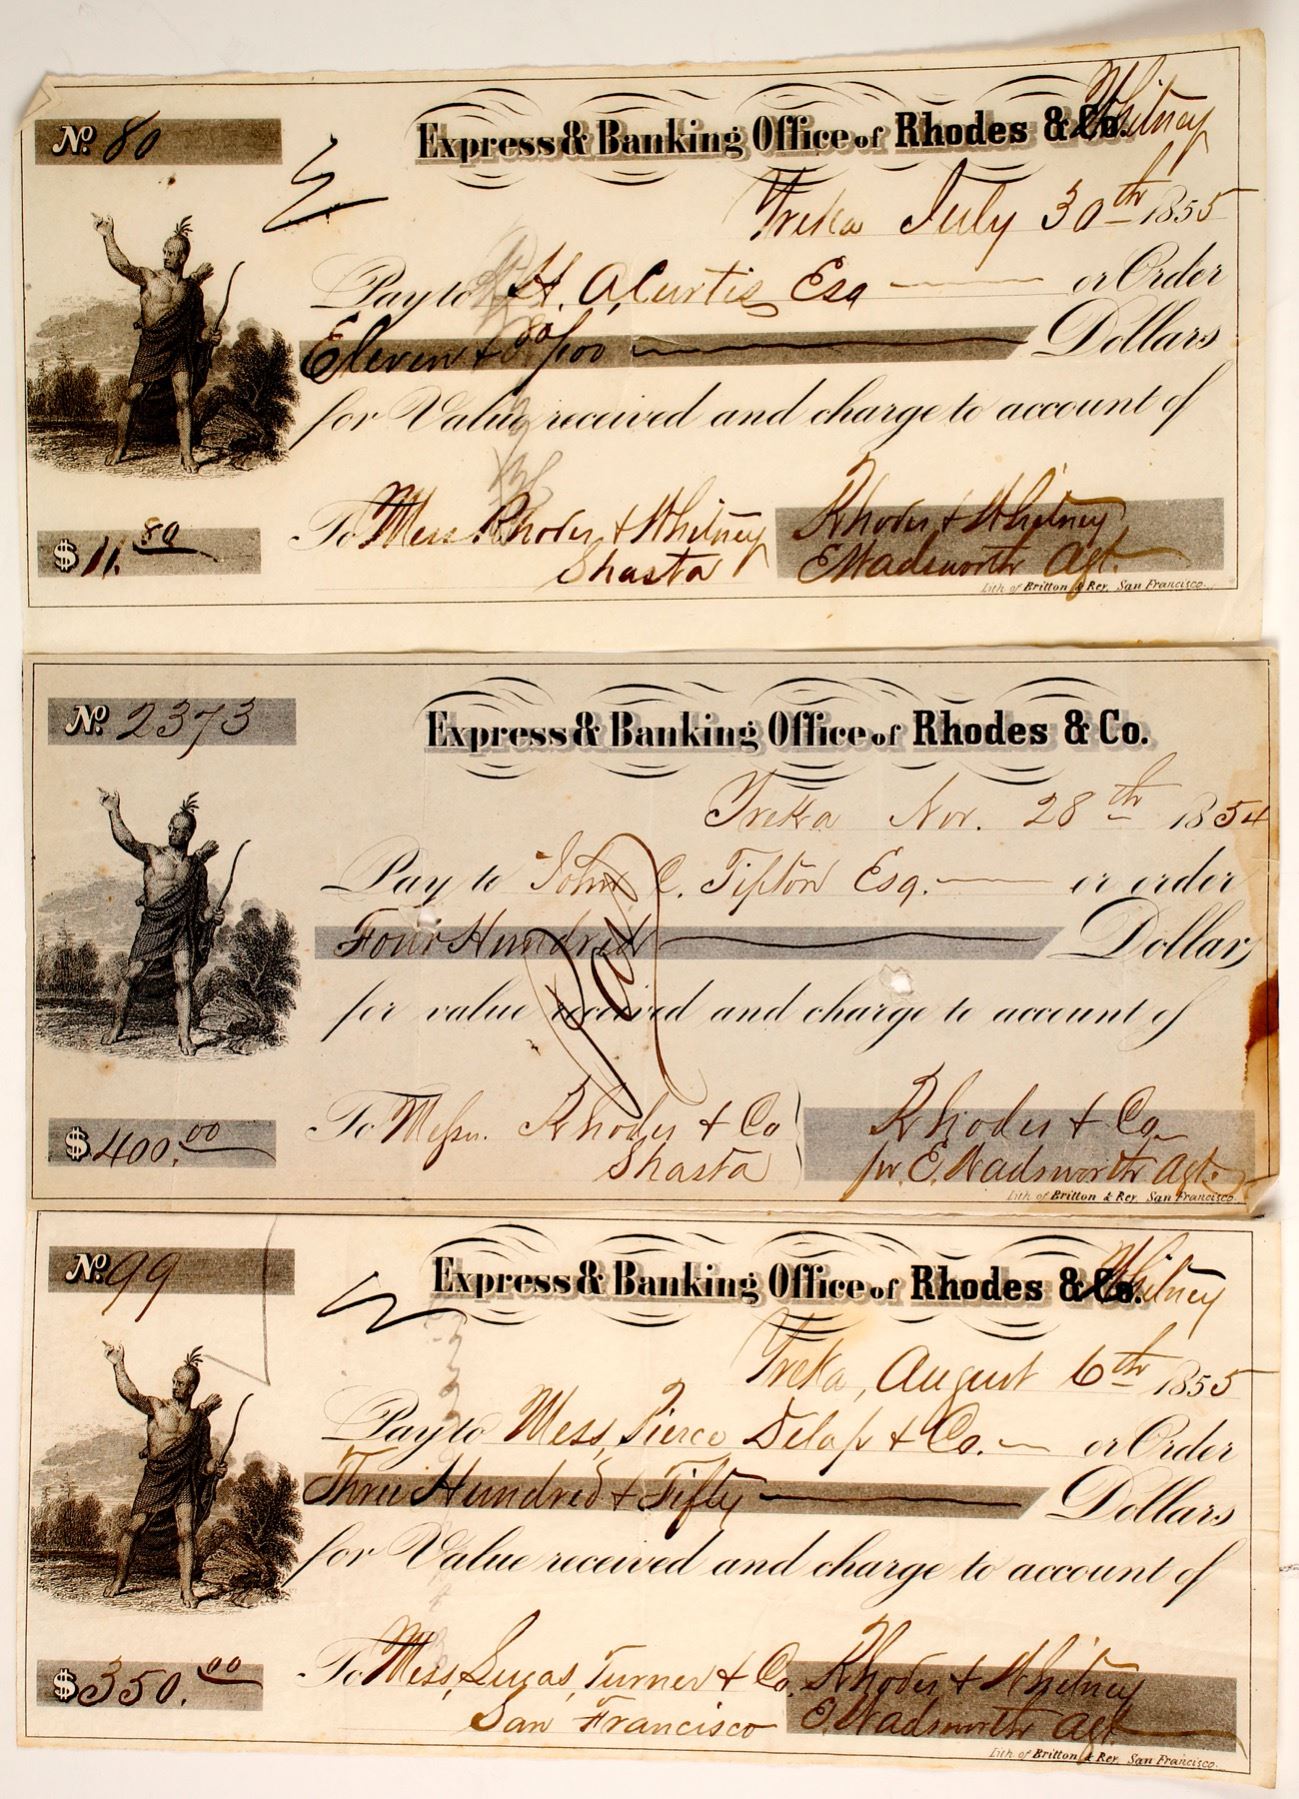 No. 80
Express & Banking Office of Rhodes & Co. Whitney
Yreka July 30th 1855
Pay to H. A. Curtis Esq or Order
Eleven & 80/100 Dollars
for Value received and charge to account of
To Mess. Rhodes & Whitney Rhodes & Whitney
Shasta E Wadsworth Agt.
$11.80
Lith of Britton & Rey, San Francisco.
No. 2373
Express & Banking Office of Rhodes & Co.
Yreka Nov. 28th 1854
Pay to John C. Tipton Esq. or order
Four Hundred Dollars
for value received and charge to account of
Paid
To Messrs. Rhodes & Co Rhodes & Co
Shasta pr. E. Wadsworth Agt.
$400.00
Lith of Britton & Rey, San Francisco.
No. 99
Express & Banking Office of Rhodes & Co. Whitney
Yreka, August 6th 1855
Pay to Mess, Pierce Delap & Co. or Order
Three Hundred & Fifty Dollars
for Value received and charge to account of
To Mess, Lucas, Turner & Co. Rhodes & Whitney
San Francisco E. Wadsworth Agt
$350.00
Lith of Britton & Rey, San Francisco.